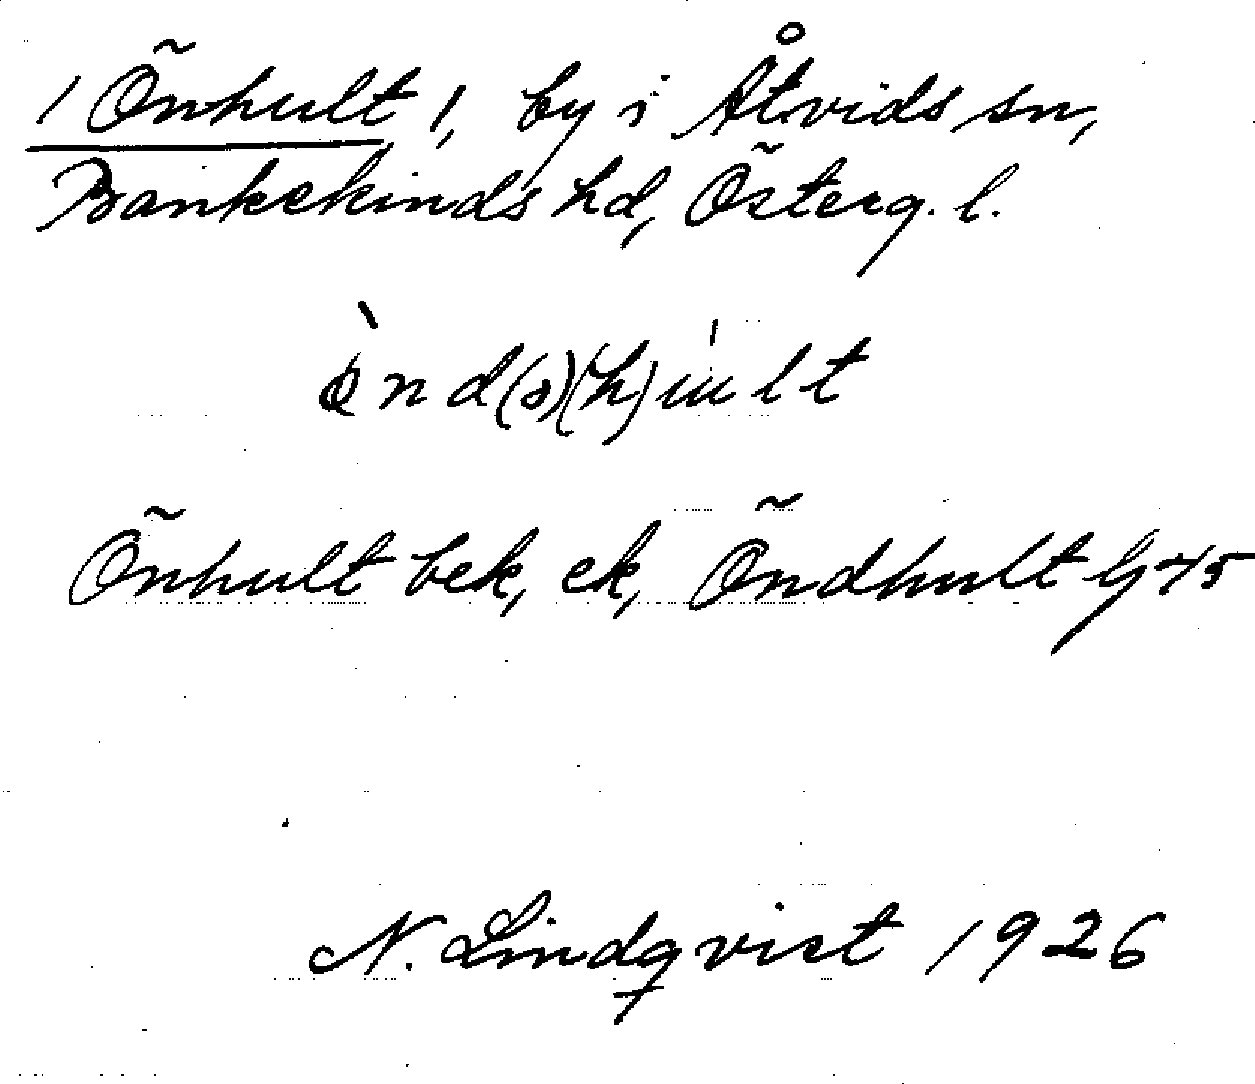 / Önhult /, by i Åtvids sn,
Bankekinds hd, Österg. l.
ònd(ə)(h)ult
Önhult bek, ek, Öndhult Gj 45
N. Lindqvist 1926